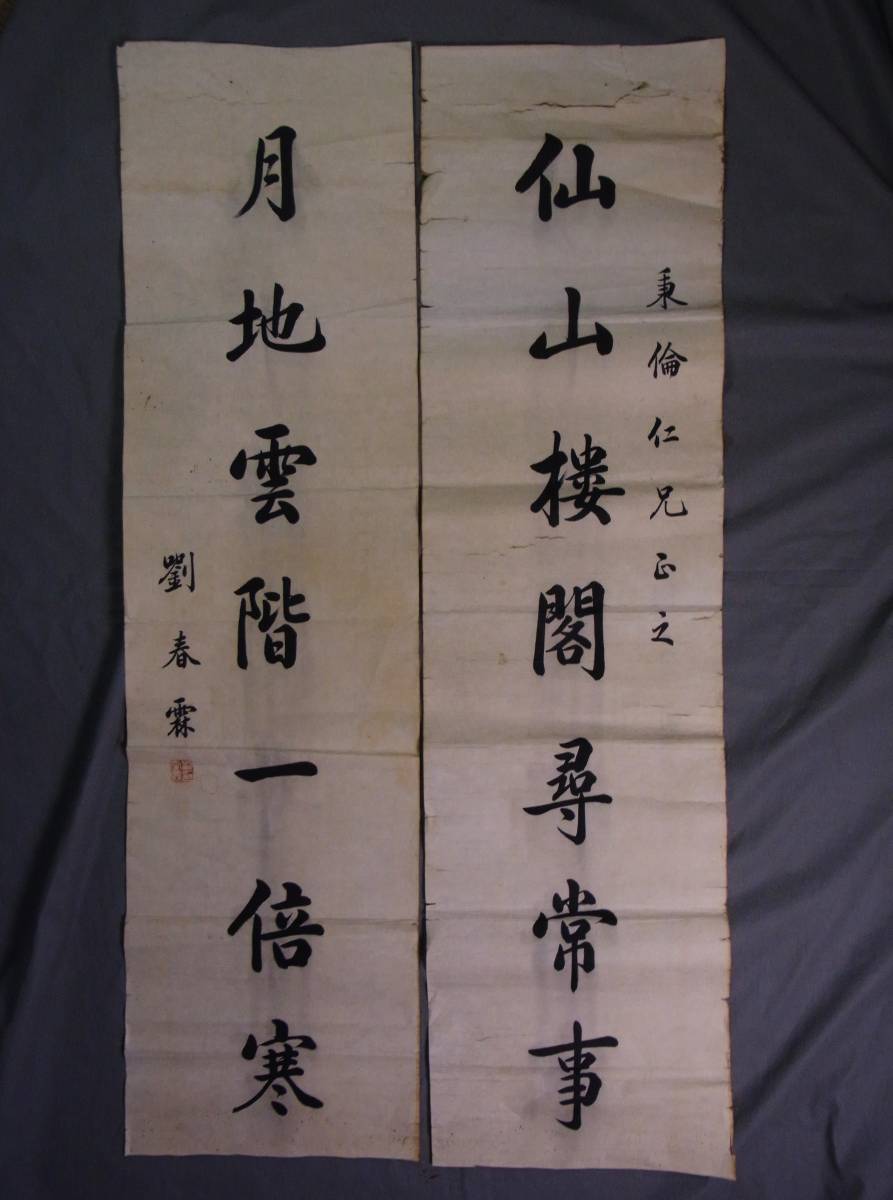 秉倫仁兄正之
仙山楼閣尋常事
月地雲階一倍寒
劉春霖